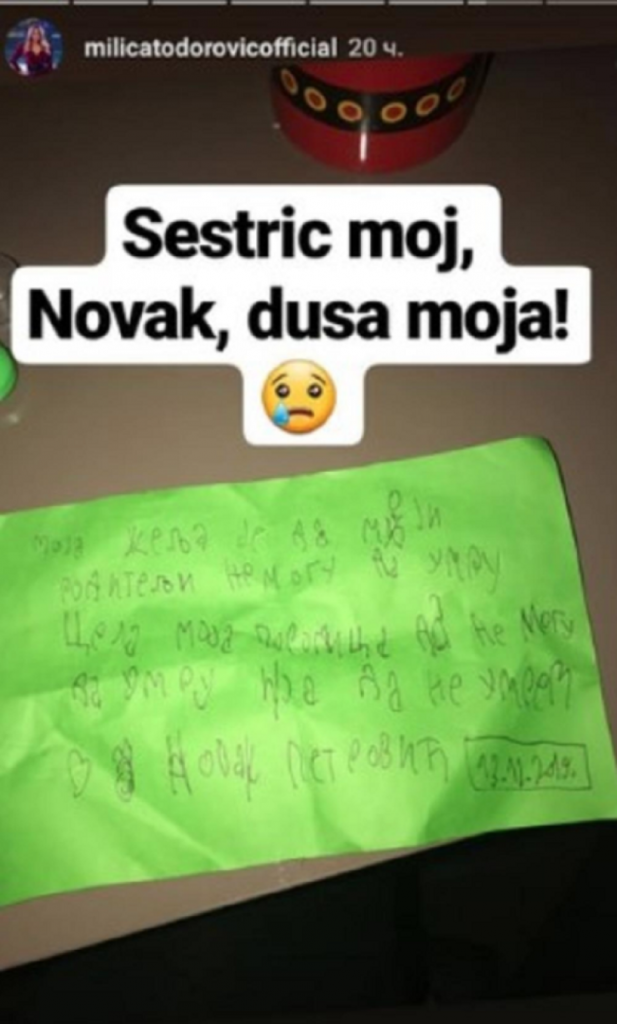 milicatodorovicofficial 20 ч.
Sestric moj,
Novak, dusa moja!
моја жеља је да моји
родитељи не могу да умру
Цела моја породица да не могу
да умру и ја да не умрем
Новак Петровић 13.11.2019.